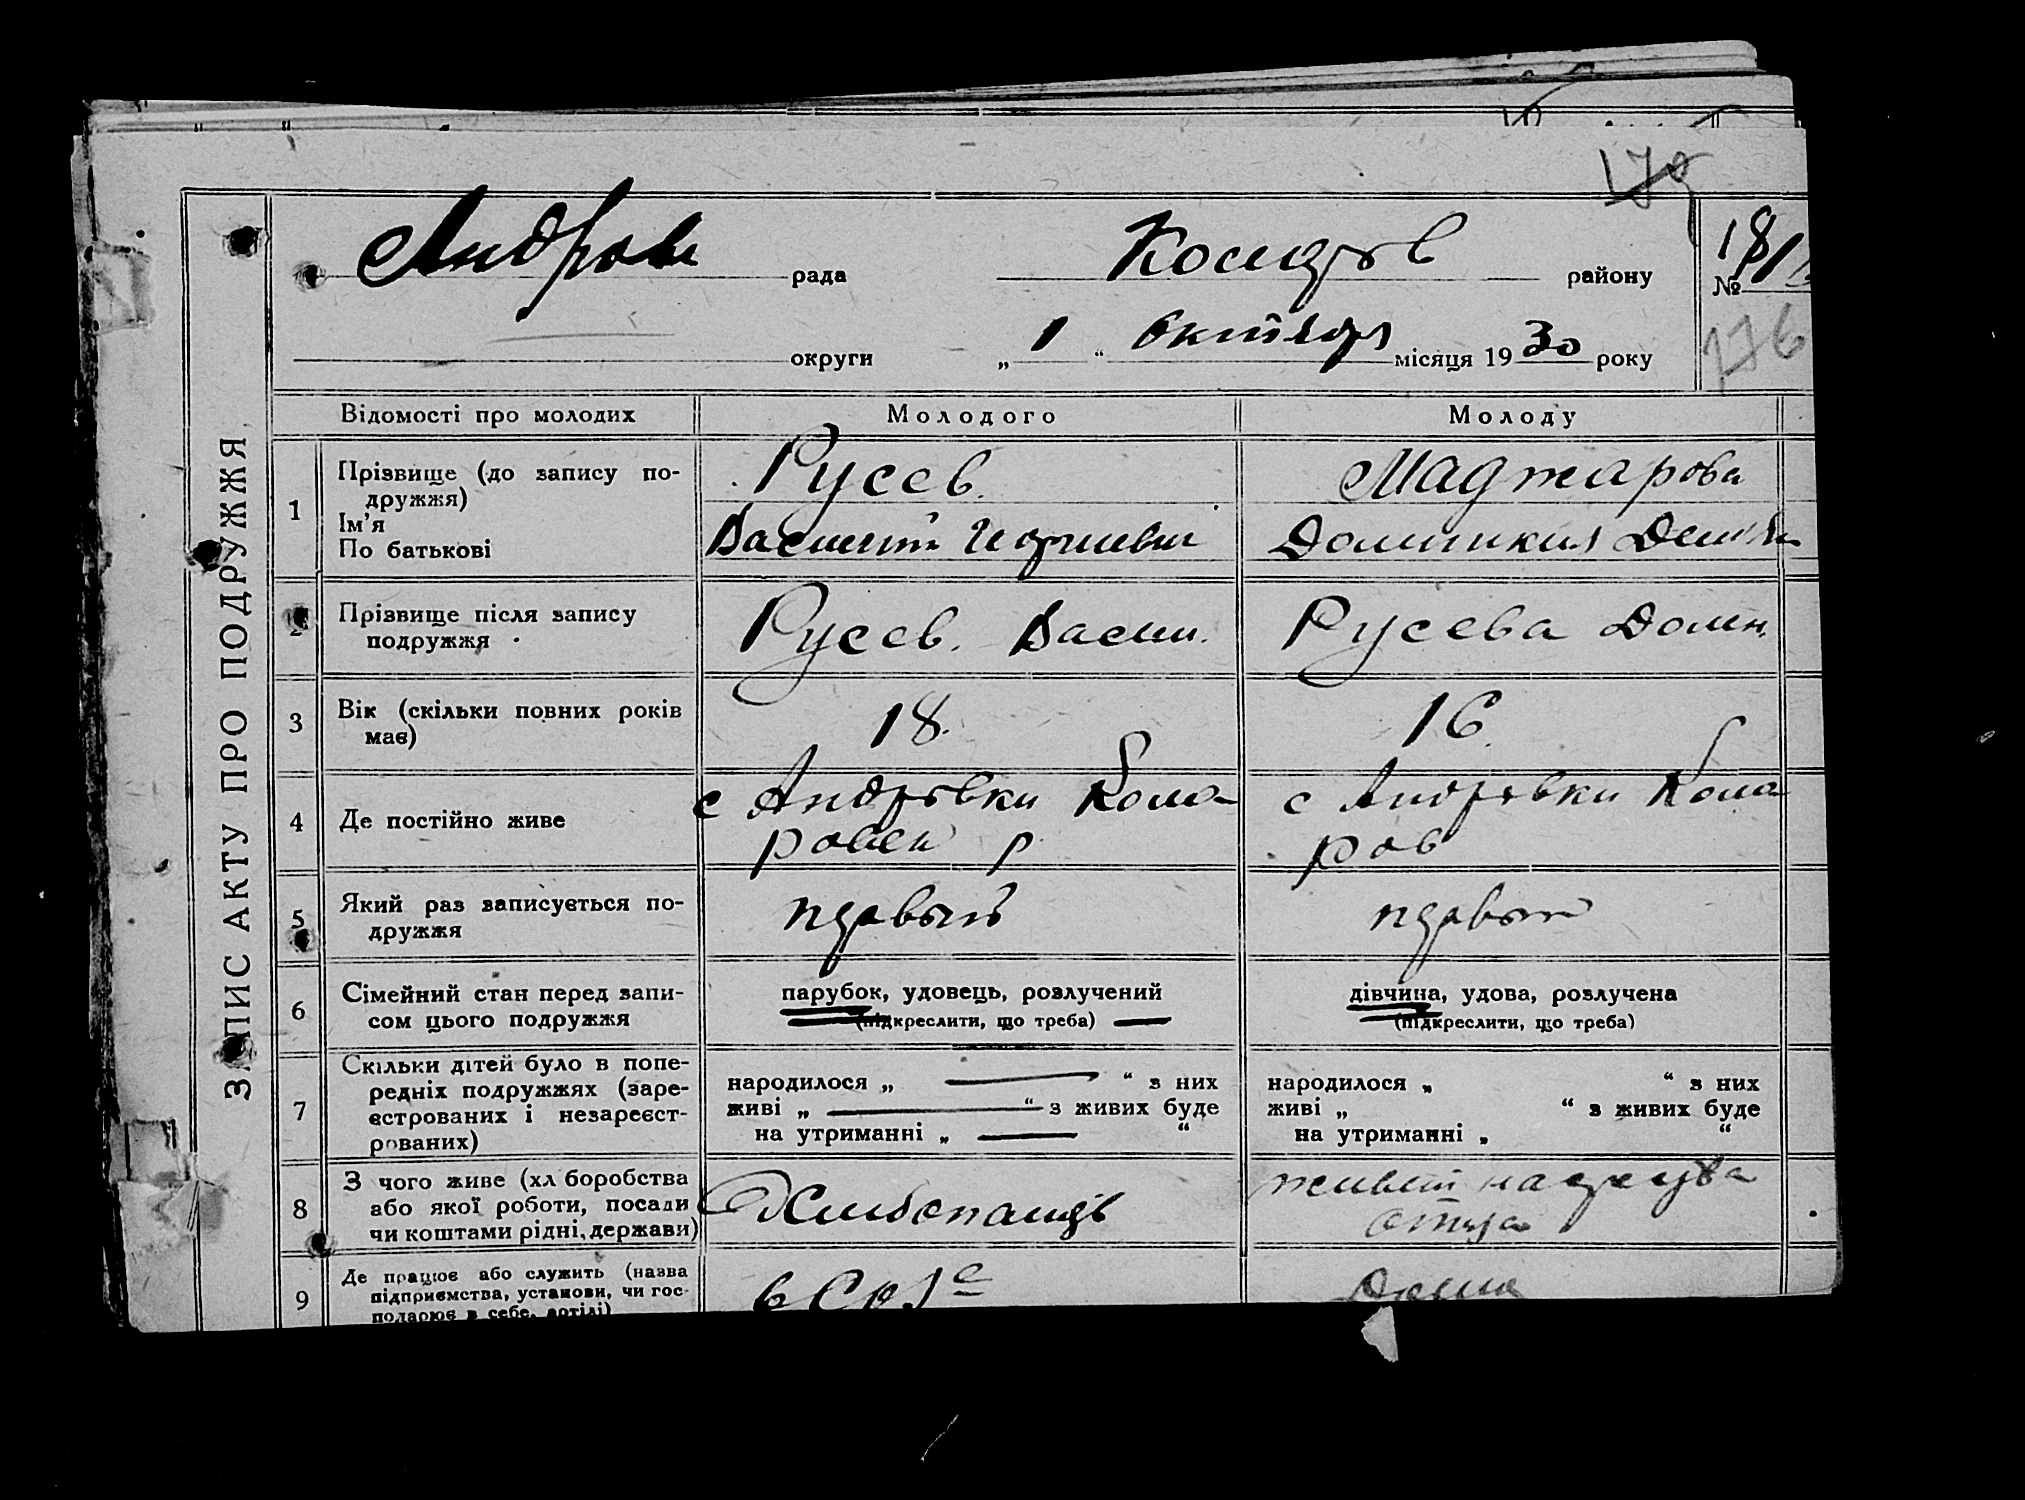 170
Андров рада
района району
№ 181
округи
„ 1 “ Октября місяця 1930 року
176
ЗАПИС АКТУ ПРО ПОДРУЖЖЯ
Відомості про молодих
Молодого
Молоду
1
Прізвище (до запису по-
дружжя)
Ім'я
По батькові
Русев.
Маджарова
Василий
Доминикия
2
Прізвище після запису
подружжя
Русев. Васил.
Русева Домн.
3
Вік (скільки повних років
має)
18.
16.
4
Де постійно живе
с Андровки Кола-
ровск р
с Андровки Кола
ров
5
Який раз записується по-
дружжя
первый
первый
6
Сімейний стан перед запи-
сом цього подружжя
парубок, удовець, розлучений
(підкреслити, що треба)
дівчина, удова, розлучена
(підкреслити, що треба)
7
Скільки дітей було в попе-
редніх подружжях (заре-
єстрованих і незареєст-
рованих)
народилося „ “ з них
живі „ “ з живих буде
на утриманні „ “
народилося „ “ з них
живі „ “ з живих буде
на утриманні „ “
8
З чого живе (хл боробства
або якої роботи, посади
чи коштами рідні, держави)
Хлебопашец
живет на средства
отца
9
Де працює або служить (назва
підприємства, установи, чи гос-
подарює в себе, артілі)